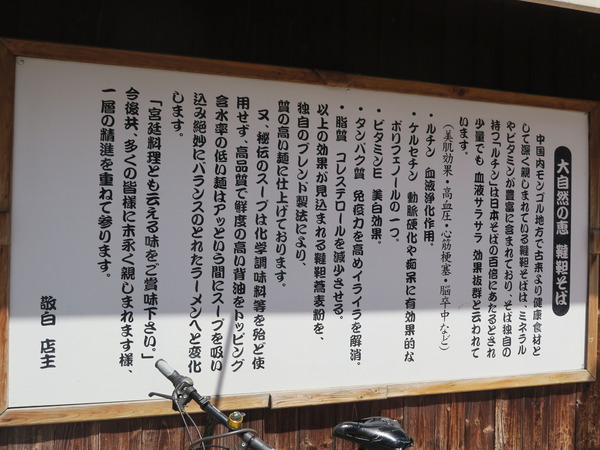 大自然の恵 韃靼そば
中国内モンゴル地方で古来より健康食材と
して深く親しまれている韃靼そばは、ミネラル
やビタミンが豊富に含まれており、そば独自の
持つ「ルチン」は日本そばの百倍にあたるとされ
少量でも 血液サラサラ 効果抜群と云われて
います。
(美肌効果・高血圧・心筋梗塞・脳卒中など)
・ルチン 血液浄化作用。
・ケルセチン 動脈硬化や痴呆に有効果的な
ポリフェノールの一つ。
・ビタミンE 美白効果。
・タンパク質 免疫力を高めイライラを解消。
・脂質 コレステロールを減少させる。
以上の効果が見込まれる韃靼蕎麦粉を、
独自のブレンド製法により、
質の高い麺に仕上げております。
又、秘伝のスープは化学調味料等を殆ど使
用せず、高品質で鮮度の高い背油をトッピング
含水率の低い麺はアッという間にスープを吸い
込み絶妙にバランスのとれたラーメンへと変化
します。
「宮廷料理とも云える味をご賞味下さい。」
今後共、多くの皆様に末永く親しまれます様、
一層の精進を重ねて参ります。
敬白 店主